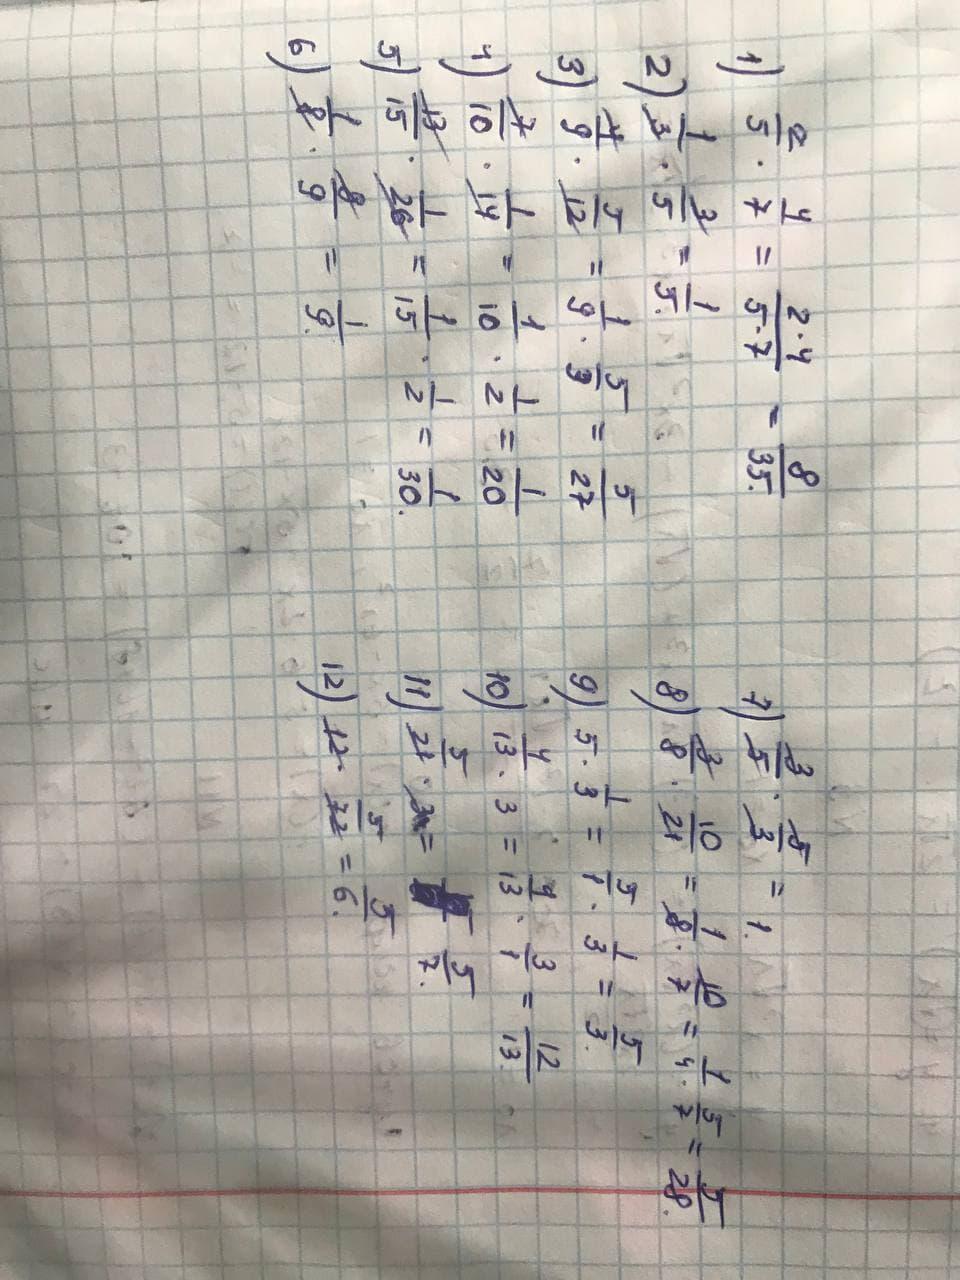 1) 2/5 · 4/7 = 2·4/5·7 = 8/35.
2) 1/3 · 3/5 = 1/5.
3) 4/9 · 5/12 = 1/9 · 5/3 = 5/27
4) 7/10 · 1/14 = 1/10 · 1/2 = 1/20
5) 13/15 · 1/26 = 1/15 · 1/2 = 1/30.
6) 1/8 · 8/9 = 1/9.
7) 3/5 · 5/3 = 1.
8) 3/8 · 10/21 = 1/8 · 10/7 = 1/4 · 5/7 = 5/28.
9) 5 · 1/3 = 5/1 · 1/3 = 5/3.
10) 4/13 · 3 = 4/13 · 3/1 = 12/13.
11) 5/21 · 3 = 5/7.
12) 12 · 5/72 = 5/6.